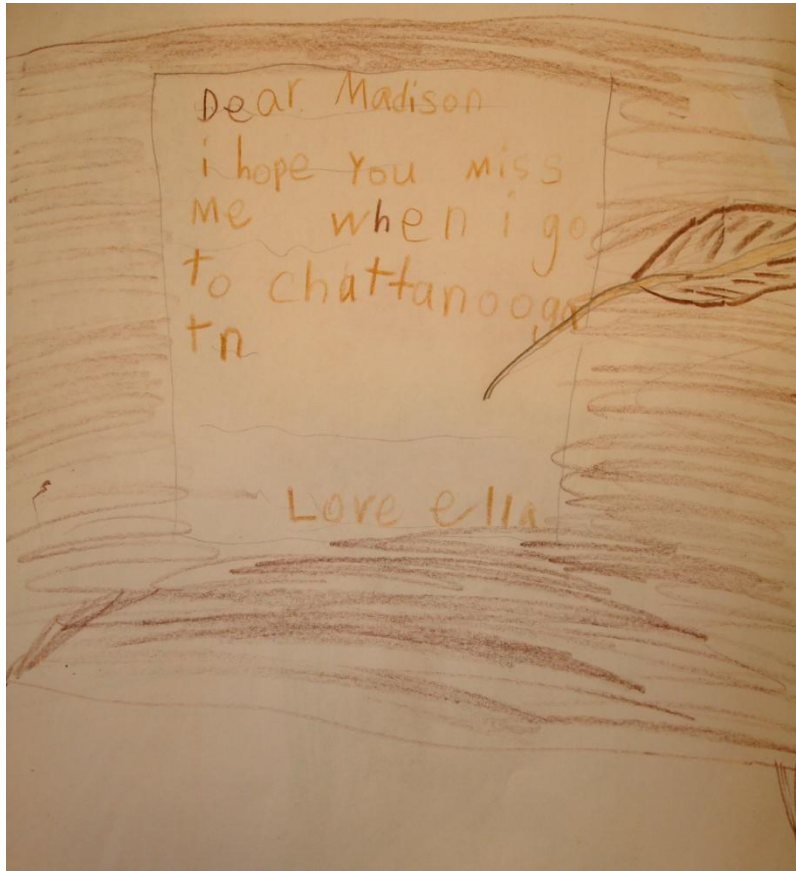 Dear Madison
i hope You Miss
Me when i go
to chattanooga
tn
Love ella